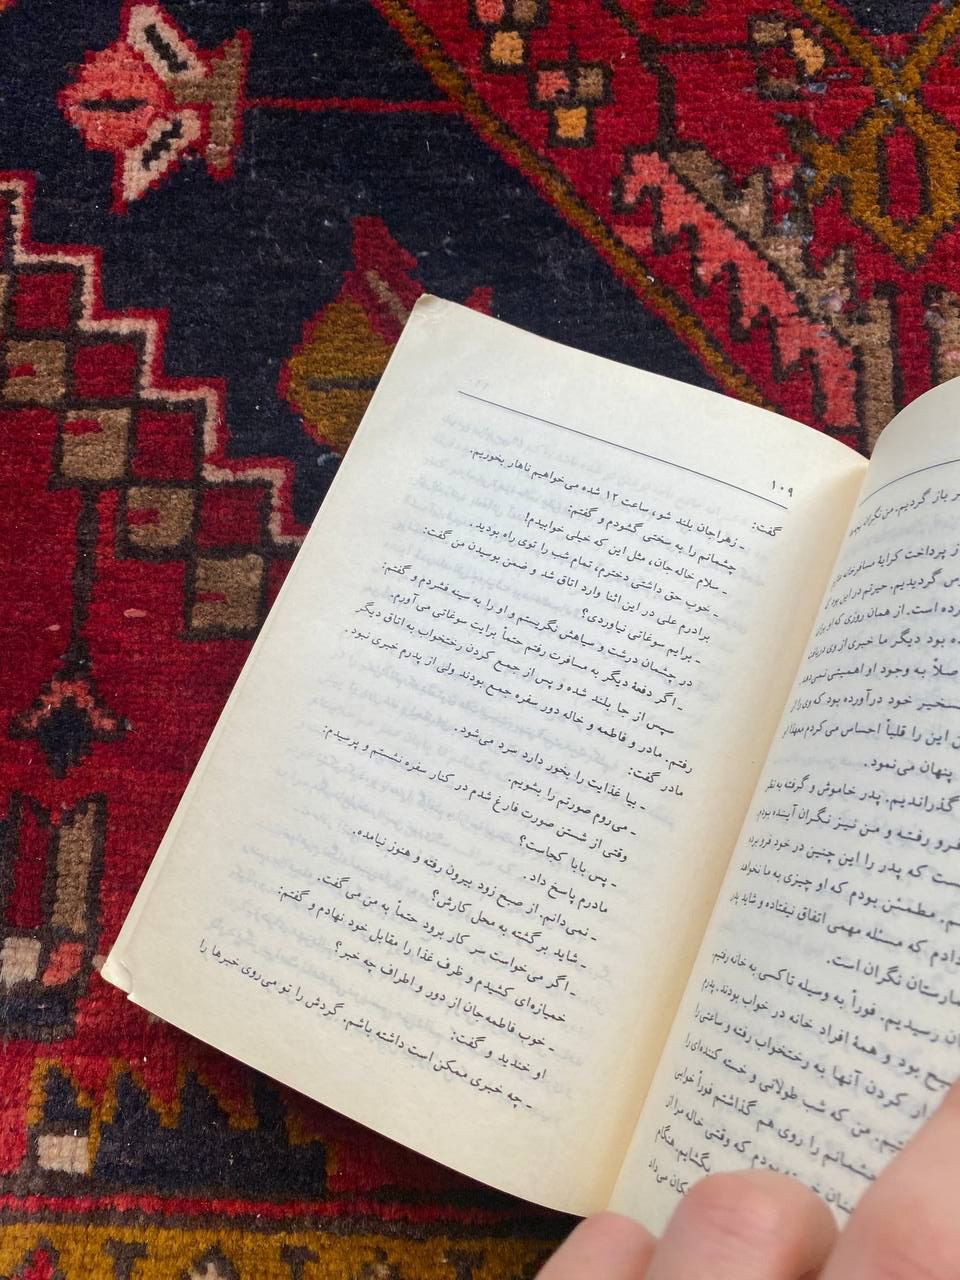 یر باز گردیدیم. من نگران
از پرداخت کرایهٔ مسافرخانه
گردیدیم. حیرتم در این بود
رده است. از همان روزی که او برای
ده بود دیگر ما خبری از وی دریافت
صلاً به وجود او اهمیتی نمی‌دهد
سخیر خود درآورده بود که وی را از
این را قلباً احساس می‌کردم معهذا او
پنهان می‌نمود.
گذراندیم. پدر خاموش و گرفته به نظر
فرو رفته و من نیز نگران آینده بودم.
ست که پدر را این چنین در خود فرو برده
م. مطمئن بودم که او چیزی به ما نخواهد
دادم که مسئله مهمی اتفاق نیفتاده و شاید پدر
مارستان نگران است.
ان رسیدیم. فوراً به وسیله تاکسی به خانه رفتیم.
بح بود و همهٔ افراد خانه در خواب بودند. پدرم
ار کردن آنها به رختخواب رفته و ساعتی را
تیم. من که شب طولانی و خسته کننده‌ای را
چشمانم را روی هم گذاشتم فوراً خوابی
بودم که وقتی خاله مرا از
بگشایم. هنگام
مکان می‌داد
۱۰۹
گفت:
- زهراجان بلند شو، ساعت ۱۲ شده می‌خواهیم ناهار بخوریم.
چشمانم را به سختی گشودم و گفتم:
- سلام خاله‌جان، مثل این که خیلی خوابیدم!
- خوب حق داشتی دخترم، تمام شب را توی راه بودید.
برادرم علی در این اثنا وارد اتاق شد و ضمن بوسیدن من گفت:
- برایم سوغاتی نیاوردی؟
در چشمان درشت و سیاهش نگریستم و او را به سینه فشردم و گفتم:
- اگر دفعهٔ دیگر به مسافرت رفتم حتماً برایت سوغاتی می‌آورم.
سپس از جا بلند شده و پس از جمع کردن رختخواب به اتاق دیگر
رفتم. مادر و فاطمه و خاله دور سفره جمع بودند ولی از پدرم خبری نبود.
مادر گفت:
- بیا غذایت را بخور دارد سرد می‌شود.
- می‌روم صورتم را بشویم.
وقتی از شستن صورت فارغ شدم در کنار سفره نشستم و پرسیدم:
- پس بابا کجاست؟
مادرم پاسخ داد.
- نمی‌دانم. از صبح زود بیرون رفته و هنوز نیامده.
- شاید برگشته به محل کارش؟
- اگر می‌خواست سر کار برود حتماً به من می‌گفت.
خمیازه‌ای کشیدم و ظرف غذا را مقابل خود نهادم و گفتم:
- خوب فاطمه‌جان از دور و اطراف چه خبر؟
او خندید و گفت:
- چه خبری ممکن است داشته باشم. گردش را تو می‌روی خبرها را